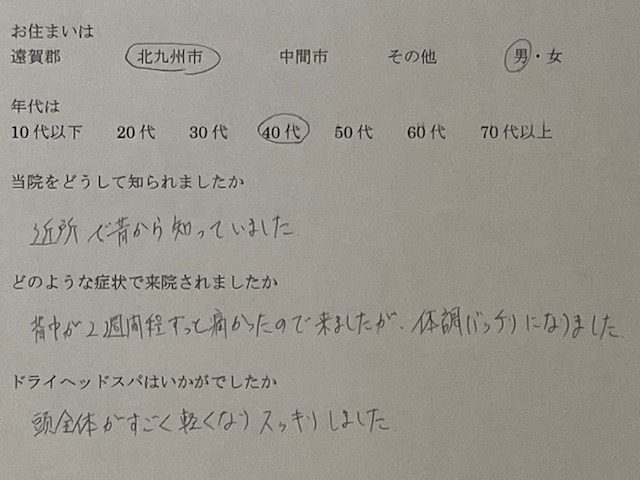 お住まいは
遠賀郡 北九州市 中間市 その他 男・女
年代は
10代以下 20代 30代 40代 50代 60代 70代以上
当院をどうして知られましたか
近所で昔から知っていました
どのような症状で来院されましたか
背中が2週間程ずっと痛かったので来ましたが、体調バッチリになりました
ドライヘッドスパはいかがでしたか
頭全体がすごく軽くなりスッキリしました